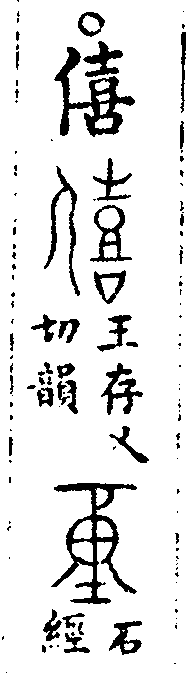 僖
僖
王存乂
切韻
石
經